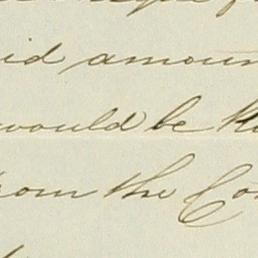 id amoun
would be th
from the Co